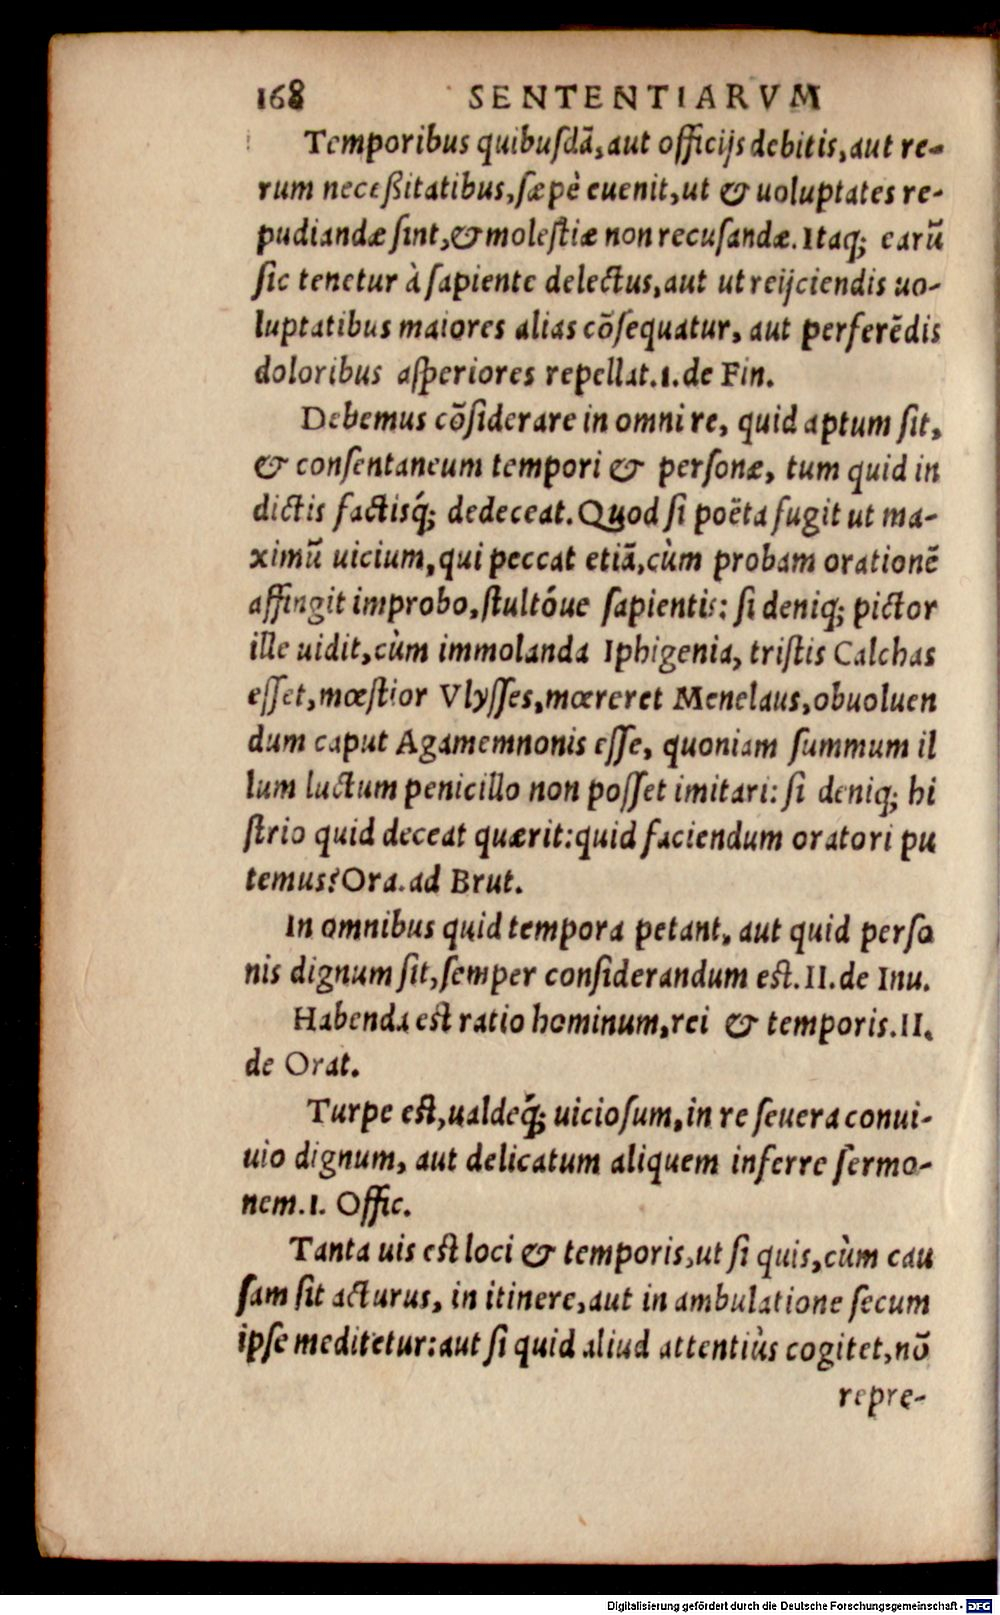 168 SENTENTIARVM
Temporibus quibuſdã, aut officijs debitis, aut re-
rum neceßitatibus, ſæpè euenit, ut & uoluptates re-
pudiandæ ſint, & moleſtiæ non recuſandæ. Itaq; earũ
ſic tenetur à ſapiente delectus, aut ut reijciendis uo-
luptatibus maiores alias cõſequatur, aut perferẽdis
doloribus aſperiores repellat. 1. de Fin.
Debemus cõſiderare in omni re, quid aptum ſit,
& conſentaneum tempori & perſonæ, tum quid in
dictis factisq́; dedeceat. Quod ſi poëta fugit ut ma-
ximũ uicium, qui peccat etiã, cùm probam orationẽ
affingit improbo, ſtultóue ſapientis: ſi deniq; pictor
ille uidit, cùm immolanda Iphigenia, triſtis Calchas
eſſet, mœſtior Vlyſſes, mœreret Menelaus, obuoluen
dum caput Agamemnonis eſſe, quoniam ſummum il
lum luctum penicillo non poſſet imitari: ſi deniq; hi
ſtrio quid deceat quærit: quid faciendum oratori pu
temus? Ora. ad Brut.
In omnibus quid tempora petant, aut quid perſo
nis dignum ſit, ſemper conſiderandum eſt. II. de Inu.
Habenda eſt ratio hominum, rei & temporis. II.
de Orat.
Turpe eſt, ualdeq́; uicioſum, in re ſeuera conui-
uio dignum, aut delicatum aliquem inferre ſermo-
nem. 1. Offic.
Tanta uis eſt loci & temporis, ut ſi quis, cùm cau
ſam ſit acturus, in itinere, aut in ambulatione ſecum
ipſe meditetur: aut ſi quid aliud attentiùs cogitet, nõ
repre-
Digitalisierung gefördert durch die Deutsche Forschungsgemeinschaft - DFG